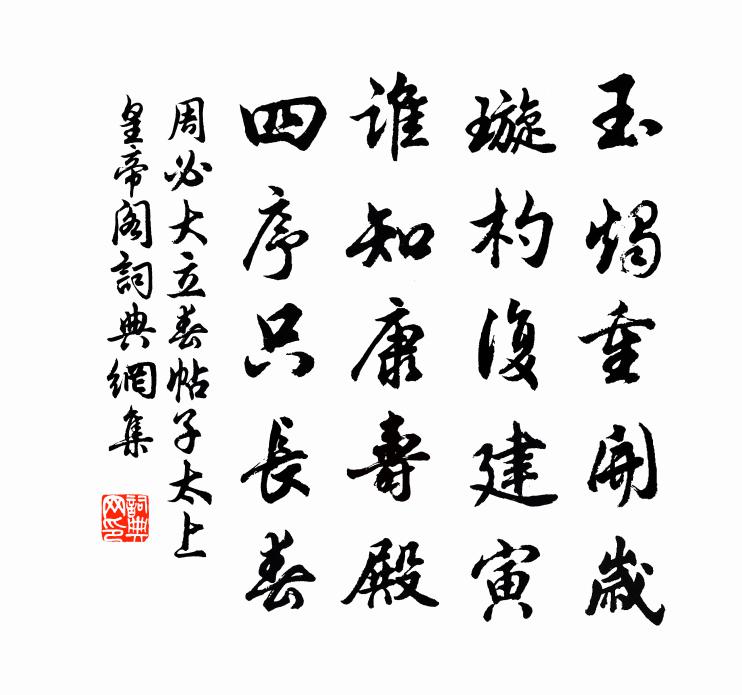 玉燭重開歲
璇杓復建寅
誰知康壽殿
四序只長春
周必大立春帖子太上
皇帝閣詞典網集
詞典網印